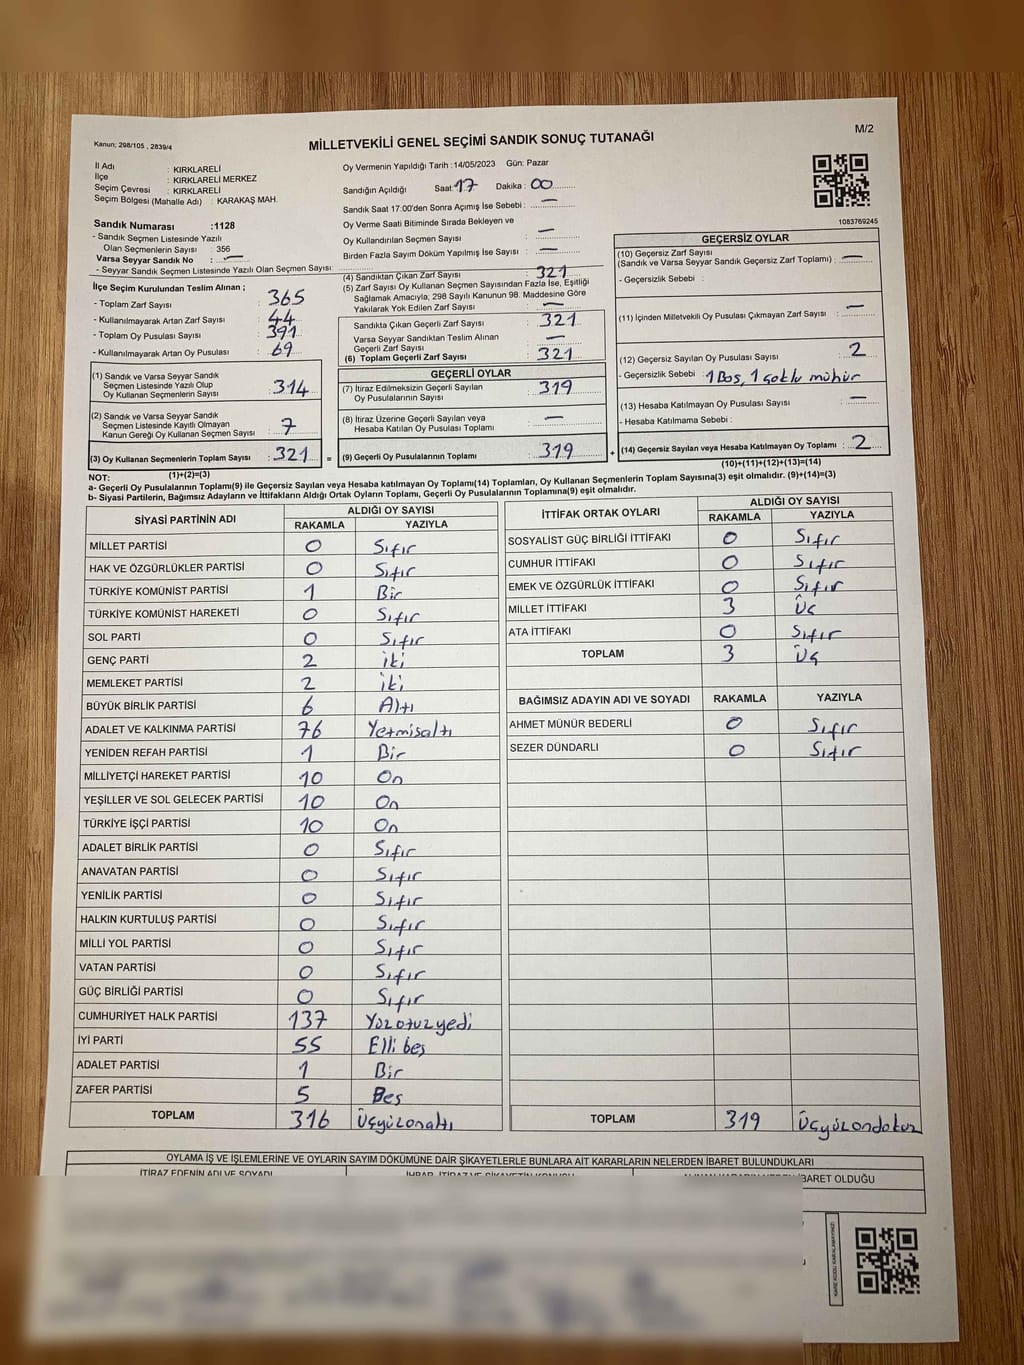 Kanun; 298/105 , 2839/4
M/2
MİLLETVEKİLİ GENEL SEÇİMİ SANDIK SONUÇ TUTANAĞI
İl Adı : KIRKLARELİ
İlçe : KIRKLARELİ MERKEZ
Seçim Çevresi : KIRKLARELİ
Seçim Bölgesi (Mahalle Adı) : KARAKAŞ MAH.
Oy Vermenin Yapıldığı Tarih :14/05/2023 Gün: Pazar
Sandığın Açıldığı Saat 17 Dakika : 00
Sandık Saat 17.00'den Sonra Açımış İse Sebebi : —
Oy Verme Saati Bitiminde Sırada Bekleyen ve
Oy Kullandırılan Seçmen Sayısı : —
Birden Fazla Sayım Döküm Yapılmış İse Sayısı : —
1083769245
Sandık Numarası :1128
- Sandık Seçmen Listesinde Yazılı
Olan Seçmenlerin Sayısı : 356
Varsa Seyyar Sandık No : —
- Seyyar Sandık Seçmen Listesinde Yazılı Olan Seçmen Sayısı:
İlçe Seçim Kurulundan Teslim Alınan ;
- Toplam Zarf Sayısı : 365
- Kullanılmayarak Artan Zarf Sayısı : 44
- Toplam Oy Pusulası Sayısı : 391
- Kullanılmayarak Artan Oy Pusulası : 69
(1) Sandık ve Varsa Seyyar Sandık
Seçmen Listesinde Yazılı Olup
Oy Kullanan Seçmenlerin Sayısı : 314
(2) Sandık ve Varsa Seyyar Sandık
Seçmen Listesinde Kayıtlı Olmayan
Kanun Gereği Oy Kullanan Seçmen Sayısı : 7
(3) Oy Kullanan Seçmenlerin Toplam Sayısı : 321 =
(1)+(2)=(3)
(4) Sandıktan Çıkan Zarf Sayısı : 321
(5) Zarf Sayısı Oy Kullanan Seçmen Sayısından Fazla İse, Eşitliği
Sağlamak Amacıyla; 298 Sayılı Kanunun 98. Maddesine Göre
Yakılarak Yok Edilen Zarf Sayısı : —
Sandıkta Çıkan Geçerli Zarf Sayısı : 321
Varsa Seyyar Sandıktan Teslim Alınan
Geçerli Zarf Sayısı : —
(6) Toplam Geçerli Zarf Sayısı : 321
GEÇERLİ OYLAR
(7) İtiraz Edilmeksizin Geçerli Sayılan
Oy Pusulalarının Sayısı : 319
(8) İtiraz Üzerine Geçerli Sayılan veya
Hesaba Katılan Oy Pusulası Toplamı : —
(9) Geçerli Oy Pusulalarının Toplamı : 319 +
GEÇERSİZ OYLAR
(10) Geçersiz Zarf Sayısı
(Sandık ve Varsa Seyyar Sandık Geçersiz Zarf Toplamı) : —
- Geçersizlik Sebebi :
(11) İçinden Milletvekili Oy Pusulası Çıkmayan Zarf Sayısı : —
(12) Geçersiz Sayılan Oy Pusulası Sayısı : 2
- Geçersizlik Sebebi : 1 Boş, 1 çoklu mühür
(13) Hesaba Katılmayan Oy Pusulası Sayısı : —
- Hesaba Katılmama Sebebi :
(14) Geçersiz Sayılan veya Hesaba Katılmayan Oy Toplamı : 2
(10)+(11)+(12)+(13)=(14)
NOT:
a- Geçerli Oy Pusulalarının Toplamı(9) ile Geçersiz Sayılan veya Hesaba katılmayan Oy Toplamı(14) Toplamları, Oy Kullanan Seçmenlerin Toplam Sayısına(3) eşit olmalıdır. (9)+(14)=(3)
b- Siyasi Partilerin, Bağımsız Adayların ve İttifakların Aldığı Ortak Oyların Toplamı, Geçerli Oy Pusulalarının Toplamına(9) eşit olmalıdır.
SİYASİ PARTİNİN ADI ALDIĞI OY SAYISI
RAKAMLA YAZIYLA
MİLLET PARTİSİ 0 Sıfır
HAK VE ÖZGÜRLÜKLER PARTİSİ 0 Sıfır
TÜRKİYE KOMÜNİST PARTİSİ 1 Bir
TÜRKİYE KOMÜNİST HAREKETİ 0 Sıfır
SOL PARTİ 0 Sıfır
GENÇ PARTİ 2 iki
MEMLEKET PARTİSİ 2 iki
BÜYÜK BİRLİK PARTİSİ 6 Altı
ADALET VE KALKINMA PARTİSİ 76 Yetmisaltı
YENİDEN REFAH PARTİSİ 1 Bir
MİLLİYETÇİ HAREKET PARTİSİ 10 On
YEŞİLLER VE SOL GELECEK PARTİSİ 10 On
TÜRKİYE İŞÇİ PARTİSİ 10 On
ADALET BİRLİK PARTİSİ 0 Sıfır
ANAVATAN PARTİSİ 0 Sıfır
YENİLİK PARTİSİ 0 Sıfır
HALKIN KURTULUŞ PARTİSİ 0 Sıfır
MİLLİ YOL PARTİSİ 0 Sıfır
VATAN PARTİSİ 0 Sıfır
GÜÇ BİRLİĞİ PARTİSİ 0 Sıfır
CUMHURİYET HALK PARTİSİ 137 Yüzotuzyedi
İYİ PARTİ 55 Elli beş
ADALET PARTİSİ 1 Bir
ZAFER PARTİSİ 5 Beş
TOPLAM 316 Üçyüzonaltı
İTTİFAK ORTAK OYLARI ALDIĞI OY SAYISI
RAKAMLA YAZIYLA
SOSYALİST GÜÇ BİRLİĞİ İTTİFAKI 0 Sıfır
CUMHUR İTTİFAKI 0 Sıfır
EMEK VE ÖZGÜRLÜK İTTİFAKI 0 Sıfır
MİLLET İTTİFAKI 3 Üç
ATA İTTİFAKI 0 Sıfır
TOPLAM 3 Üç
BAĞIMSIZ ADAYIN ADI VE SOYADI RAKAMLA YAZIYLA
AHMET MÜNÜR BEDERLİ 0 Sıfır
SEZER DÜNDARLI 0 Sıfır
TOPLAM 319 Üçyüzondokuz
OYLAMA İŞ VE İŞLEMLERİNE VE OYLARIN SAYIM DÖKÜMÜNE DAİR ŞİKAYETLERLE BUNLARA AİT KARARLARIN NELERDEN İBARET BULUNDUKLARI
İTİRAZ EDENİN ADI VE SOYADI
İBARET OLDUĞU